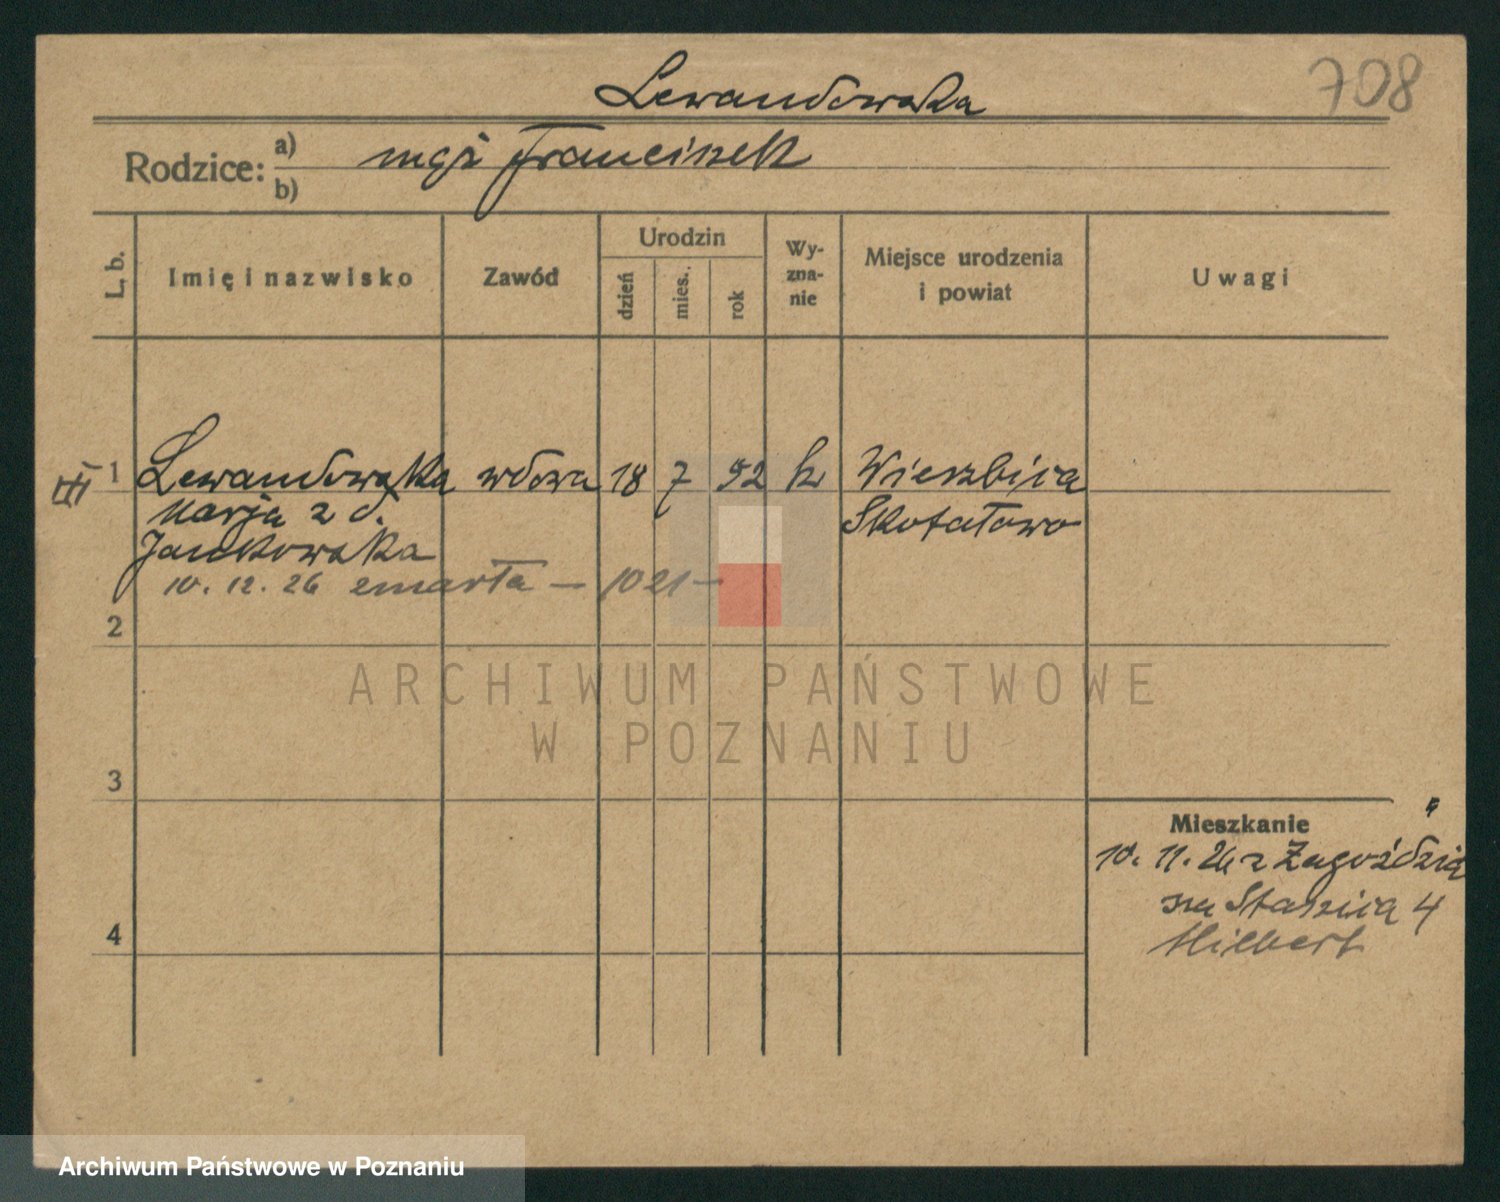 708
Lewandowska
Rodzice: a) mąż Franciszek
b)
L. b. Imię i nazwisko Zawód Urodzin dzień mies. rok Wy-zna-nie Miejsce urodzenia i powiat Uwagi
1 Lewandowska wdowa 18 7 92 k Wierzbica
Marja z d. Skotatowo
Jankowska
10. 12. 26 zmarła — 1021 —
2
3
4
Mieszkanie
10. 11. 26 z Zagoździa
na Staszica 4
Hilbert
ARCHIWUM PAŃSTWOWE
W POZNANIU
Archiwum Państwowe w Poznaniu